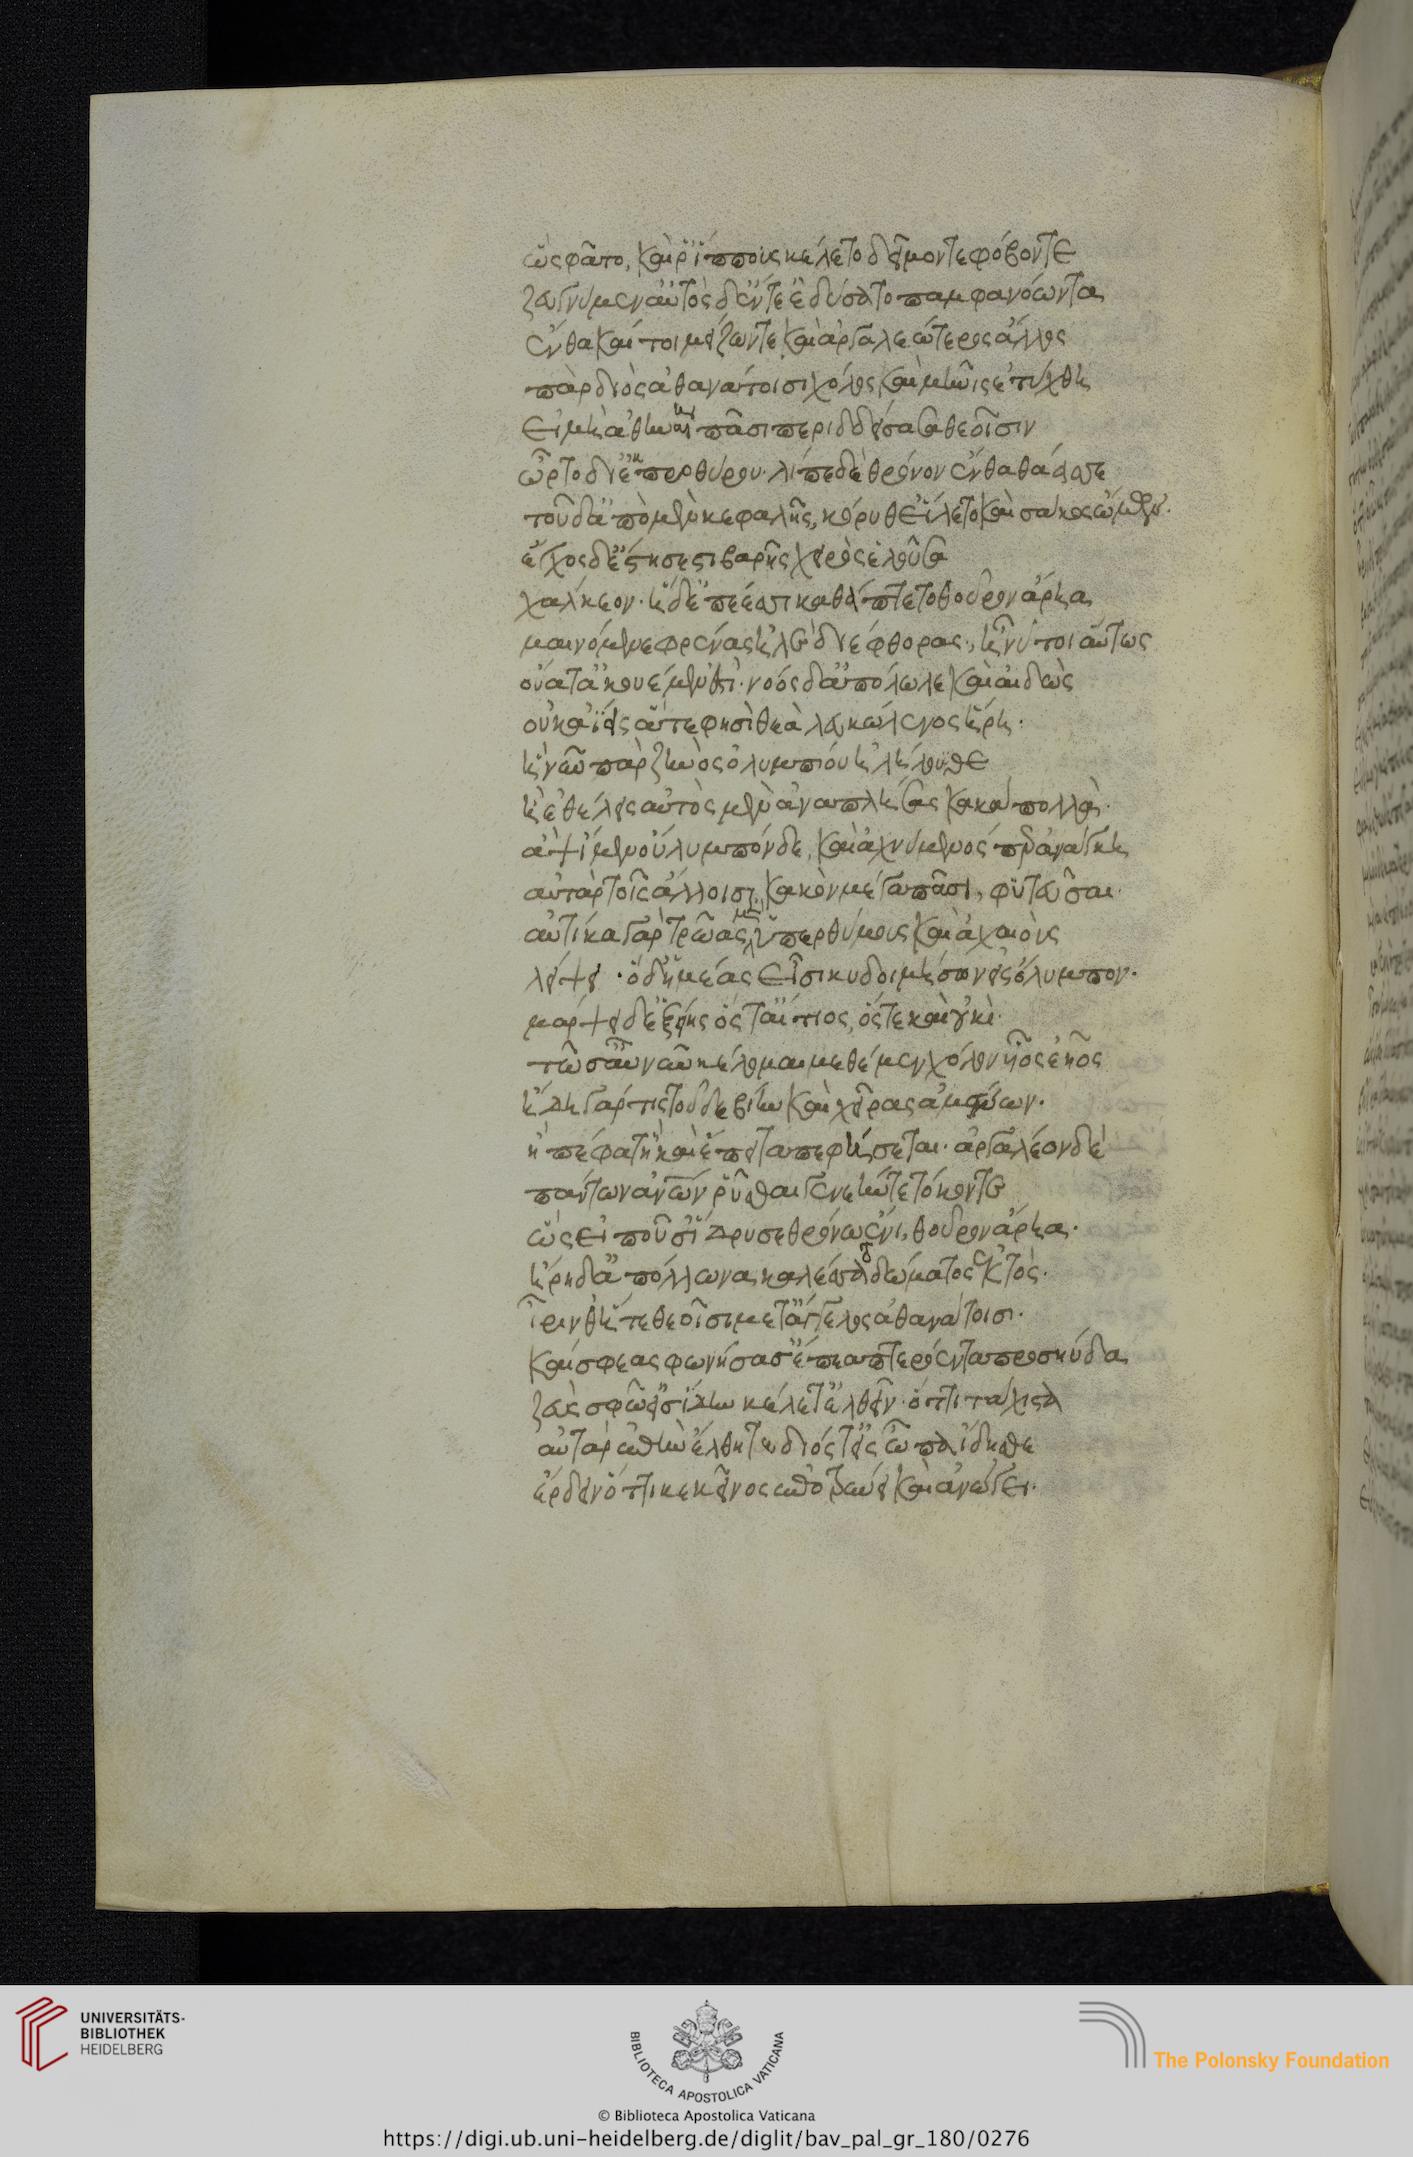 ὣς φάτο, καί ῥ' ἵπποις κέλετο δεῖμόν τε φόβον τε
ζευγνύμεν αὐτὸς δ' ἔντε' ἐδύσατο παμφανόωντα
ἔνθα καί τοι μείζων τε καὶ ἀργαλεώτερος ἄλλος
πὰρ διὸς ἀθανάτοισι χόλος καὶ μῆνις ἐτύχθη
εἰ μὴ ἀθήνη πᾶσι περιδδείσασα θεοῖσιν
ὦρτο διὲκ προθύρου· λίπε δὲ θρόνον ἔνθα θάασσε
τοῦ δ' ἀπὸ μὲν κεφαλῆς, κόρυθ' εἵλετο καὶ σάκος ὤμων·
ἔγχος δ' ἔστησε στιβαρῆς χειρὸς ἑλοῦσα
χάλκεον· ἡ δ' ἐπέεσσι καθάπτετο θοῦρον ἄρηα
μαινόμενε φρένας ἠλὲ διέφθορας·, ἦ νύ τοι αὔτως
οὔατ' ἀκουέμεν ἐστί· νόος δ' ἀπόλωλε καὶ αἰδὼς
οὐκ ἀΐεις ἅ τε φησὶ θεὰ λευκώλενος ἥρη·
ἣ νῦν πὰρ ζηνὸς ὀλυμπίου εἰλήλουθε
ἢ ἐθέλεις αὐτὸς μὲν ἀναπλήσας κακὰ πολλὰ·
ἂψ ἴμεν οὔλυμπόνδε, καὶ ἀχνύμενός περ ἀνάγκη
αὐτὰρ τοῖς ἄλλοισι, κακὸν μέγα πᾶσι, φυτεῦσαι·
αὐτίκα γὰρ τρῶας μὲν ὑπερθύμους καὶ ἀχαιοὺς
λείψει· ὁ δ' ἡμέας εἶσι κυδοιμήσων εἰς ὄλυμπον·
μάρψει δ' ἑξείης ὅς τ' αἴτιος, ὅς τε καὶ οὐκὶ·
τῶ σ' αὖ νῦν κέλομαι μεθέμεν χόλον υἷος ἑῆος
ἤδη γάρ τις τοῦδε βίην καὶ χεῖρας ἀμείνων·
ἢ πέφατ' ἢ καὶ ἔπειτα πεφήσεται· ἀργαλέον δὲ
πάντων ἀνθρώπων ῥῦσθαι γενεήν τε τόκον τε
ὣς εἰποῦσ' ἵδρυσε θρόνω ἔνι, θοῦρον ἄρηα·
ἥρη δ' ἀπόλλωνα καλέσσατο δώματος ἐκτός·
ἶριν θ' ἥ τε θεοῖσι μετάγγελος ἀθανάτοισι·
καί σφεας φωνήσασ' ἔπεα πτερόεντα προσηύδα
ζεὺς σφῶ εἰς ἴδην κέλετ' ἐλθεῖν· ὅττι τάχιστα
αὐτὰρ ἐπὴν ἔλθητε διός τ' εἰς ὦπα ἴδησθε
ἔρδειν ὅττι κε κεῖνος ἐποτρύνει καὶ ἀνώγει·
UNIVERSITÄTS-
BIBLIOTHEK
HEIDELBERG
BIBLIOTECA APOSTOLICA VATICANA
The Polonsky Foundation
© Biblioteca Apostolica Vaticana
https://digi.ub.uni-heidelberg.de/diglit/bav_pal_gr_180/0276